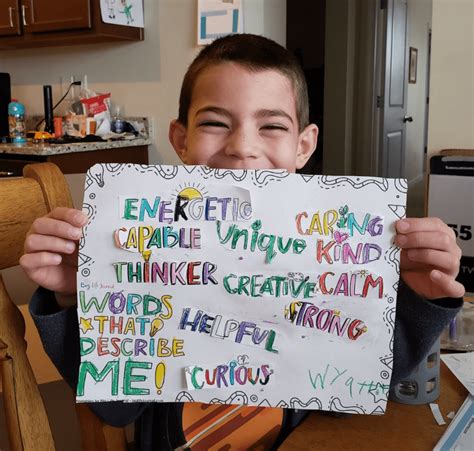 ENERGETIC
CAPABLE
UNIQUE
CARING
KIND
THINKER
CREATIVE
CALM
Big Life Journal
WORDS
THAT
DESCRIBE
ME!
HELPFUL
STRONG
CURIOUS
WYATT